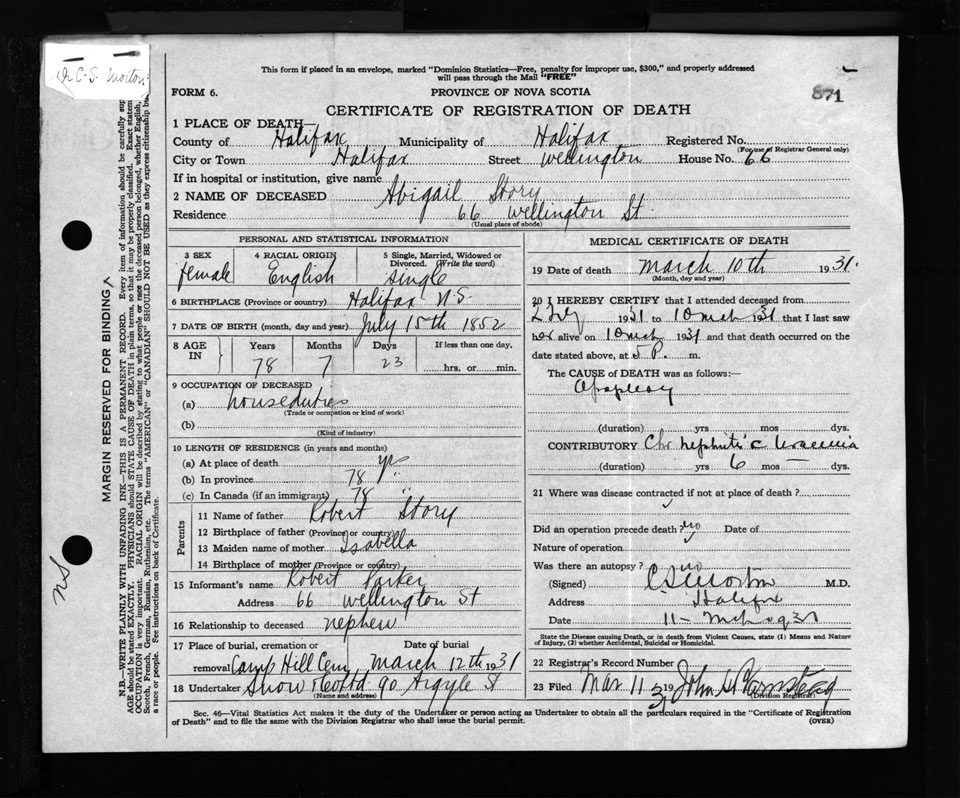 Dr C. S. Morton
This form if placed in an envelope, marked "Dominion Statistics—Free, penalty for improper use, $300," and properly addressed
will pass through the Mail "FREE"
FORM 6. PROVINCE OF NOVA SCOTIA 871
CERTIFICATE OF REGISTRATION OF DEATH
1 PLACE OF DEATH—
County of Halifax Municipality of Halifax Registered No.
(For use of Registrar General only)
City or Town Halifax Street Wellington House No. 66
If in hospital or institution, give name
2 NAME OF DECEASED Abigail Story
Residence 66 Wellington St.
(Usual place of abode)
PERSONAL AND STATISTICAL INFORMATION
3 SEX 4 RACIAL ORIGIN 5 Single, Married, Widowed or
Divorced. (Write the word)
female English single
6 BIRTHPLACE (Province or country) Halifax N.S.
7 DATE OF BIRTH (month, day and year) July 15th 1852
8 AGE IN Years Months Days If less than one day,
78 7 23 hrs. or min.
9 OCCUPATION OF DECEASED
(a) houseduties
(Trade or occupation or kind of work)
(b)
(Kind of industry)
10 LENGTH OF RESIDENCE (in years and months)
(a) At place of death yrs
(b) In province 78 "
(c) In Canada (if an immigrant) 78 "
Parents
11 Name of father Robert Story
12 Birthplace of father (Province or country)
13 Maiden name of mother Isabella
14 Birthplace of mother (Province or country)
15 Informant's name Robert Parker
Address 66 Wellington St
16 Relationship to deceased nephew
17 Place of burial, cremation or Date of burial
removal Camp Hill Cem, March 12th 1931
18 Undertaker Snow & Co Ltd 90 Argyle St
(Name and address)
MEDICAL CERTIFICATE OF DEATH
19 Date of death March 10th 1931.
(Month, day and year)
20 I HEREBY CERTIFY that I attended deceased from
1931 to 10 Mch 1931 that I last saw
her alive on 10 Mch 1931 and that death occurred on the
date stated above, at 5 P. m.
The CAUSE of DEATH was as follows:—
Apoplexy
(duration) yrs mos dys.
CONTRIBUTORY Chr nephritis c Uraemia
(duration) yrs 6 mos — dys.
21 Where was disease contracted if not at place of death?
Did an operation precede death? no Date of
Nature of operation
Was there an autopsy? no
(Signed) C S Morton M.D.
Address Halifax
Date 11 - Mch 1931
State the Disease causing Death, or in death from Violent Causes, state (1) Means and Nature
of Injury, (2) whether Accidental, Suicidal or Homicidal.
22 Registrar's Record Number
23 Filed Mar 11 1931 John H.
(Division Registrar)
Sec. 46—Vital Statistics Act makes it the duty of the Undertaker or person acting as Undertaker to obtain all the particulars required in the "Certificate of Registration
of Death" and to file the same with the Division Registrar who shall issue the burial permit. (OVER)
MARGIN RESERVED FOR BINDING
N.B.—WRITE PLAINLY WITH UNFADING INK—THIS IS A PERMANENT RECORD. Every item of information should be carefully sup
AGE should be stated EXACTLY. PHYSICIANS should STATE CAUSE OF DEATH in plain terms, so that it may be properly classified. Exact statem
OCCUPATION is very important. RACIAL ORIGIN will be described by stating to what people or race the deceased person belonged, whether English,
Scotch, French, German, Russian, Ruthenian, etc. The terms "AMERICAN" or "CANADIAN" SHOULD NOT BE USED as they express citizenship bu
a race or people. See instructions on back of Certificate.
NS